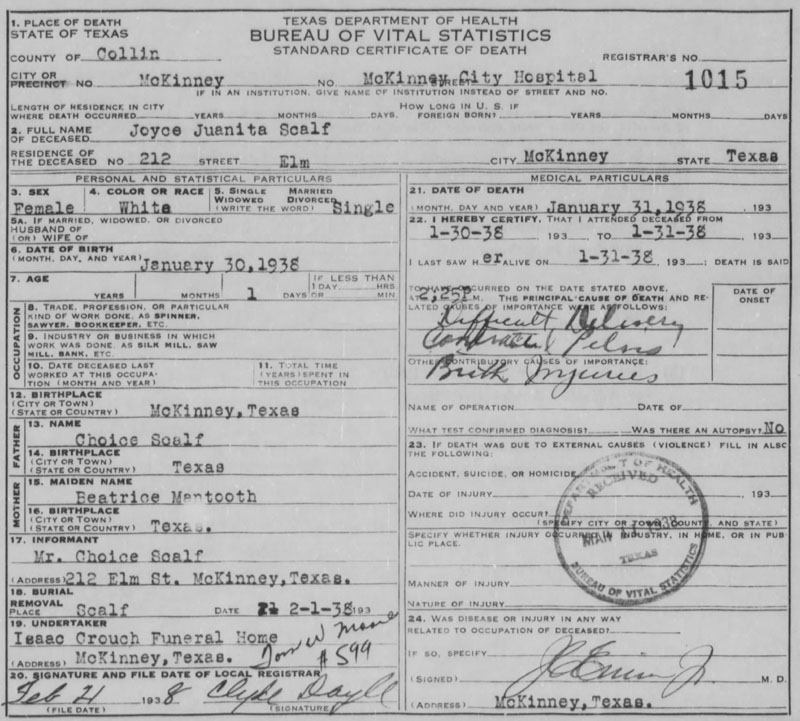 TEXAS DEPARTMENT OF HEALTH
BUREAU OF VITAL STATISTICS
STANDARD CERTIFICATE OF DEATH
1. PLACE OF DEATH
STATE OF TEXAS
COUNTY OF Collin
REGISTRAR'S NO. 1015
CITY OR PRECINCT NO McKinney NO. McKinney City Hospital STREET
IF IN AN INSTITUTION, GIVE NAME OF INSTITUTION INSTEAD OF STREET AND NO.
LENGTH OF RESIDENCE IN CITY WHERE DEATH OCCURRED YEARS MONTHS DAYS. HOW LONG IN U. S. IF FOREIGN BORN? YEARS MONTHS DAYS
2. FULL NAME OF DECEASED Joyce Juanita Scalf
RESIDENCE OF THE DECEASED NO 212 STREET Elm CITY McKinney STATE Texas
PERSONAL AND STATISTICAL PARTICULARS
3. SEX Female
4. COLOR OR RACE White
5. SINGLE MARRIED WIDOWED DIVORCED (WRITE THE WORD) Single
5A. IF MARRIED, WIDOWED, OR DIVORCED
HUSBAND OF
(OR) WIFE OF
6. DATE OF BIRTH
(MONTH, DAY, AND YEAR) January 30,1938
7. AGE YEARS MONTHS 1 DAYS
IF LESS THAN 1 DAY HRS OR MIN
OCCUPATION
8. TRADE, PROFESSION, OR PARTICULAR KIND OF WORK DONE, AS SPINNER, SAWYER, BOOKKEEPER, ETC.
9. INDUSTRY OR BUSINESS IN WHICH WORK WAS DONE, AS SILK MILL, SAW MILL, BANK, ETC.
10. DATE DECEASED LAST WORKED AT THIS OCCUPATION (MONTH AND YEAR)
11. TOTAL TIME (YEARS) SPENT IN THIS OCCUPATION
12. BIRTHPLACE
(CITY OR TOWN)
(STATE OR COUNTRY) McKinney,Texas
FATHER
13. NAME
Choice Scalf
14. BIRTHPLACE
(CITY OR TOWN)
(STATE OR COUNTRY) Texas
MOTHER
15. MAIDEN NAME
Beatrice Mantooth
16. BIRTHPLACE
(CITY OR TOWN)
(STATE OR COUNTRY) Texas.
17. INFORMANT
Mr. Choice Scalf
(ADDRESS) 212 Elm St. McKinney,Texas.
18. BURIAL
REMOVAL
PLACE Scalf DATE 2-1-38 193
19. UNDERTAKER
Isaac Crouch Funeral Home
(ADDRESS) McKinney,Texas.
Tom W Moore
#599
20. SIGNATURE AND FILE DATE OF LOCAL REGISTRAR
Feb 21 1938 Clyde
(FILE DATE) (SIGNATURE)
MEDICAL PARTICULARS
21. DATE OF DEATH
(MONTH, DAY AND YEAR) January 31,1938 , 193
22. I HEREBY CERTIFY, THAT I ATTENDED DECEASED FROM
1-30-38 193 TO 1-31-38 193
I LAST SAW Her ALIVE ON 1-31-38 193 ; DEATH IS SAID
TO HAVE OCCURRED ON THE DATE STATED ABOVE,
AT 2,25P M. THE PRINCIPAL CAUSE OF DEATH AND RELATED CAUSES OF IMPORTANCE WERE AS FOLLOWS:
DATE OF ONSET
Difficult Delivery
Contracted Pelvis
OTHER CONTRIBUTORY CAUSES OF IMPORTANCE:
Birth Injuries
NAME OF OPERATION DATE OF
WHAT TEST CONFIRMED DIAGNOSIS? WAS THERE AN AUTOPSY? No
23. IF DEATH WAS DUE TO EXTERNAL CAUSES (VIOLENCE) FILL IN ALSO THE FOLLOWING:
ACCIDENT, SUICIDE, OR HOMICIDE
DATE OF INJURY 193
WHERE DID INJURY OCCUR?
(SPECIFY CITY OR TOWN, COUNTY, AND STATE)
SPECIFY WHETHER INJURY OCCURRED IN INDUSTRY, IN HOME, OR IN PUBLIC PLACE.
MANNER OF INJURY
NATURE OF INJURY
DEPARTMENT OF HEALTH
RECEIVED
MAR 1938
TEXAS
BUREAU OF VITAL STATISTICS
24. WAS DISEASE OR INJURY IN ANY WAY RELATED TO OCCUPATION OF DECEASED?
IF SO, SPECIFY
(SIGNED) M. D.
(ADDRESS) McKinney,Texas.